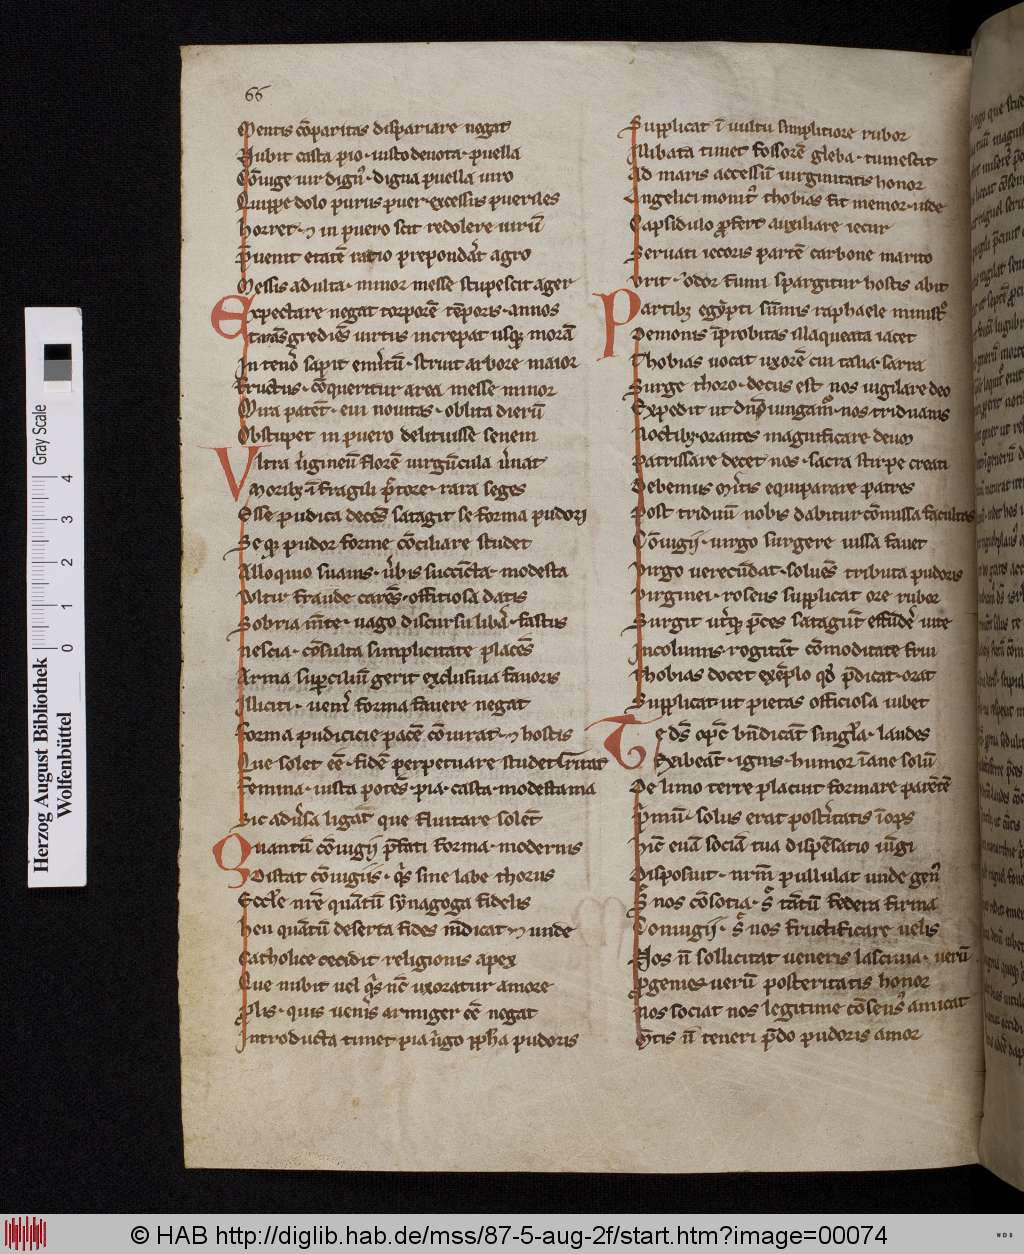 66
Mentis cōparitas dispariare negat
Nubit casta pio · iusto deuota · puella
Cōiuge uir dign᷒ · digna puella uiro
Quippe dolo purus puer · excessus pueriles
horret · ⁊ in puero scit redolere uirū
p̄uenit etatē ratio preponderat agro
Messis adulta · minor messe stupescit ager
Expectare negat corporē tēporis · annos
Et trāsgrediēs uirtus increpat usq; morā
In tenero sapit emeritū · struit arbore maior
fructus · cōqueritur area messe minor
Mira patent · eui nouitas · oblita dierū
Obstupet in puero delituisse senem
Vltra v̓gineū florē virgūcula v̓nat
Morib; ī fragili pectore · rara seges
Esse pudica decens satagit se forma pudori
Seq; pudor forme cōciliare studet
Alloquio suauis · v̓bis succīcta · modesta
Vultu fraude carēs · offitiosa datis
Sobria mēte · uago discursu libera · fastus
nescia · cōsulta simplicitate placēs
Arma superciliū gerit exclusiua fauoris
Illiciti · ueneri forma fauere negat
forma pudicicie pacē cōiurat · ⁊ hostis
Que solet eē · fidē perpetuare studet
Femina · iusta potēs · pia · casta · modesta
Sic adu̓sa ligāt que fluitare solēt
Quantū cōiugij p̄fati forma · modernis
Distat cōiugiis · quis sine labe thorus
Eccl̄e nr̄e quātū synagoga fidelis
heu quātū deserta fides mēdicat · ⁊ unde
Catholice cecidit religionis apex
Que nubit uel quis nūc uxoratur amore
Prolis · quis ueneris armiger eē negat
Introducta timet pia v̓go pudoris
Supplicat ī uultu simplitiore rubor
Illibata timet fossorē gleba · tumescit
Ad maris accessū uirginitatis honor
Angelici monit᷒ thobias fit memor · inde
Capsidulo profert auxiliare iecur
Seruati iecoris partē carbone marito
Vrit · odor fumi spargitur hostis abit
Partib; egypti sūmis raphaele ministro
Demonis īprobitas illaqueata iacet
Thobias uocat uxorē cui talia · sarra
Surge thoro · decus est nos uigilare deo
Expedit ut dn̄o iungamur · nos triduanis
Noctib; · orantes magnificare deum
Patrissare decet nos · sacra stirpe creati
Debemus meritis equiparare patres
Post triduū nobis dabitur cōmissa facultas
Cōiugii · uirgo surgere iussa fauet
Virgo uerecūdat · soluēs tributa pudoris
Virginei · roseus supplicat ore rubor
Surgit uterq; preces satagūt effūdere uite
Incolumis rogitāt cōmoditate frui
Thobias docet exēplo qd̓ p̄dicat · orat
Supplicat ut pietas officiosa iubet
Te ds̄ omē bn̄dicāt singula · laudes
Exibeāt · ignis · humor īane solū
De limo terre placuit formare parētē
Primū · solus erat posteritatis īops
Hīc euā sociā tua dispēsatio iūgi
Disposuit · nr̄m pullulat unde genus
Sed nos cōsotia · sed tātū federa firma
Coniugij · sed nos fructificare uelis
Nos nō sollicitat ueneris lasciuia · uerū
progenies uerū posteritatis honor
Nos sociat nos legitime cōsensus amicat
Mētis nō teneri p̄do pudoris amor
Herzog August Bibliothek
Wolfenbüttel
0 1 2 3 4
Gray Scale
© HAB http://diglib.hab.de/mss/87-5-aug-2f/start.htm?image=00074